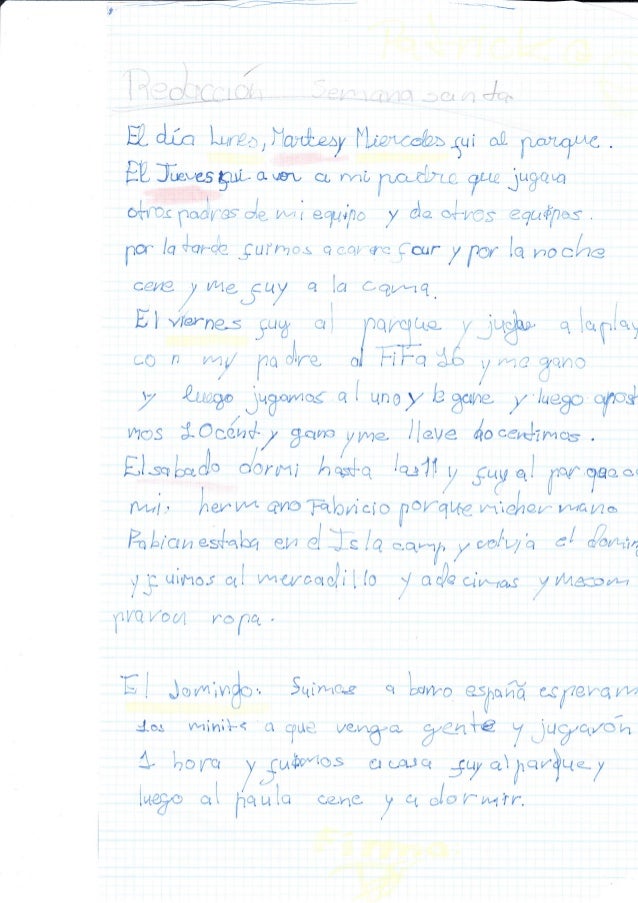 Redacción Semana santa
El día Lunes, Martes y Miercoles fui al parque.
El Jueves fui a ver a mi padre que jugava
otros padres de mi equipo y de otros equipos.
por la tarde fuimos a carrefour y por la noche
cene y me fuy a la cama.
El viernes fuy al parque y jugue a la play
con my padre al FiFa 16 y me gano
y luego jugamos al uno y le gane y luego apost
mos 10 cent y gano y me lleve centimos.
El sabado dormi hasta las 11 y fuy al parque
mi hermano Fabricio porque mi hermano
Fabian estaba en el Isla camp y volvia el domin
y fuimos al mercadillo y a y me com
pravon ropa.
El Domingo. Suimos a barro españa esperam
minits a que venga gente y jugavón
1 hora y fuimos a casa fuy al parque y
luego al paula cene y a dormir.
Firma